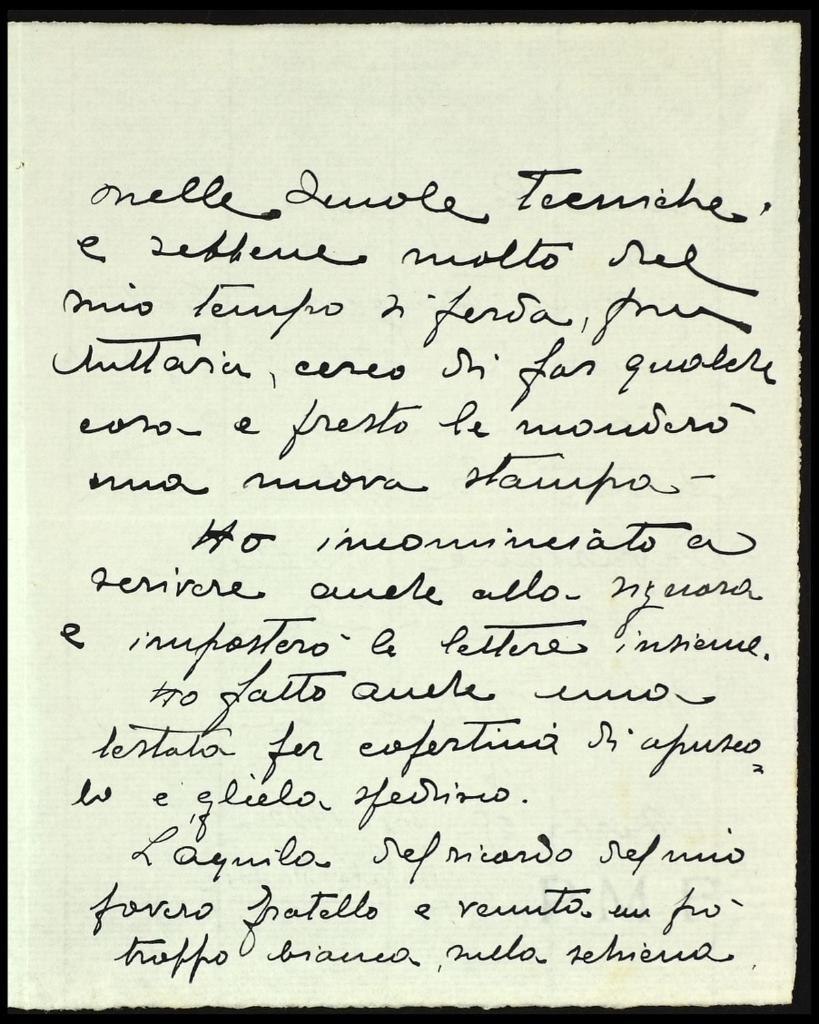 nelle Scuole Tecniche.
e sebbene molto del
mio tempo si perda, pur
tuttavia, cerco di far qualche
cosa e presto le manderò
una nuova stampa -
Ho incominciato a
scrivere anche alla signora
e imposterò le lettere insieme.
Ho fatto anche una
testata per copertina di opusco=
lo e gliela spedisco.
L'aquila del ricordo del mio
povero fratello e venuta un pò
troppo bianca, sulla schiena,